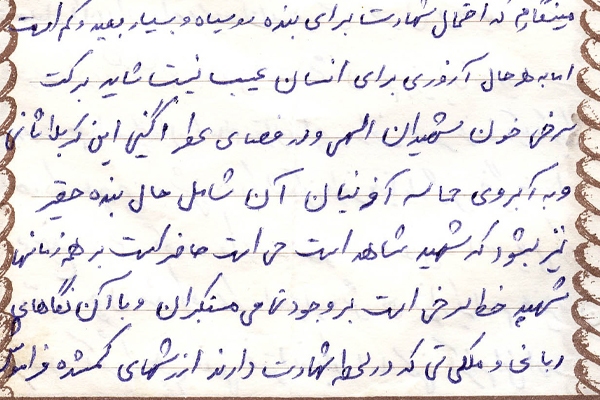 مینگارم که احتمال شهادت برای بنده روسیاه و بسیار بعید و کم است
اما به هر حال آرزوی برای انسان عیب نیست شاید برکت
سرخی خون شهیدان الهی و در فضای عطر آگین این کربلا ثانی
و به آبروی حماسه آفرینان آن شامل حال بنده حقیر
نیز بشود که شهید شاهد است حی است حاضر است بر همه زمانها
شهید خط سرخی است بر وجود تمامی مستکبران و با آن نگاههای
ربانی و ملکوتی که در لحظه شهادت دارند ارزشهای گمشده